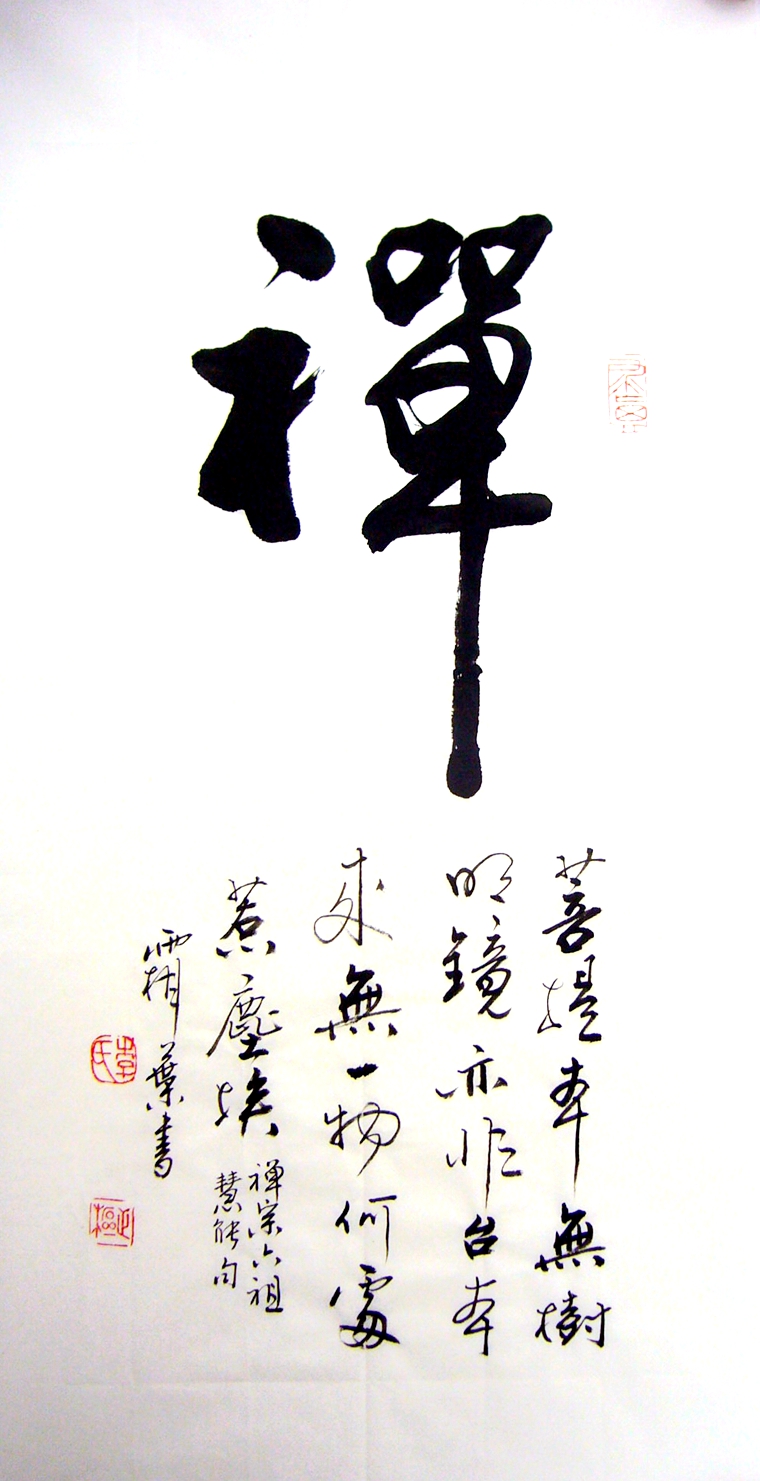 禪
菩提本無樹
明鏡亦非台本
來無一物何處
惹塵埃
禅宗六祖
慧能句
霜葉書
李氏